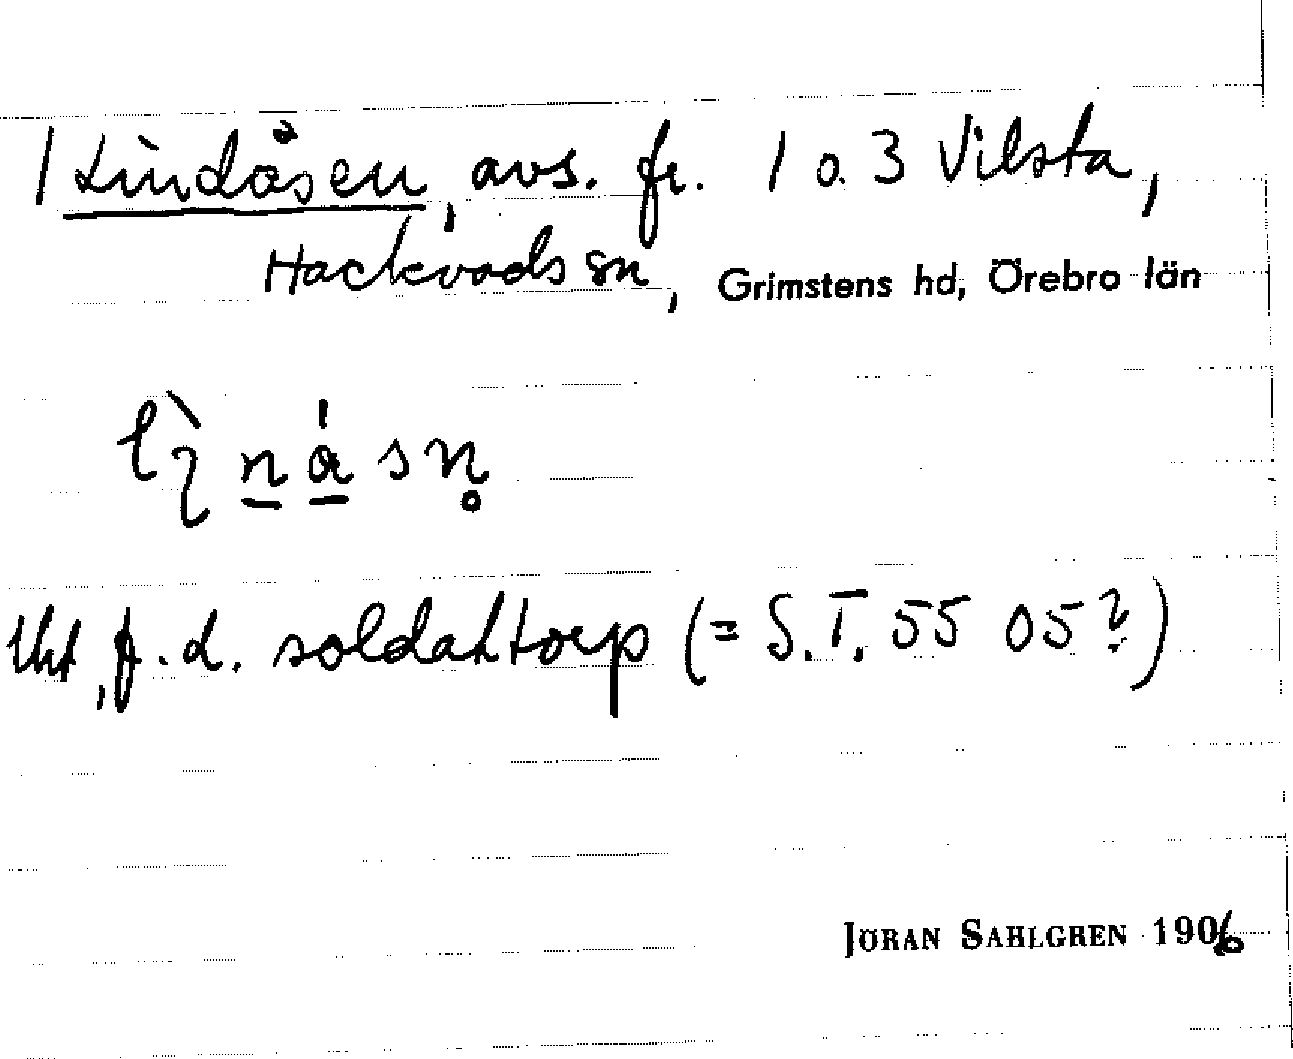 1 Lindåsen, avs. fr. 1 o. 3 Vilsta,
Hackvads sn, Grimstens hd, Örebro län
lht, f. d. soldattorp (= S. T. 55 05?)
JÖRAN SAHLGREN 1906